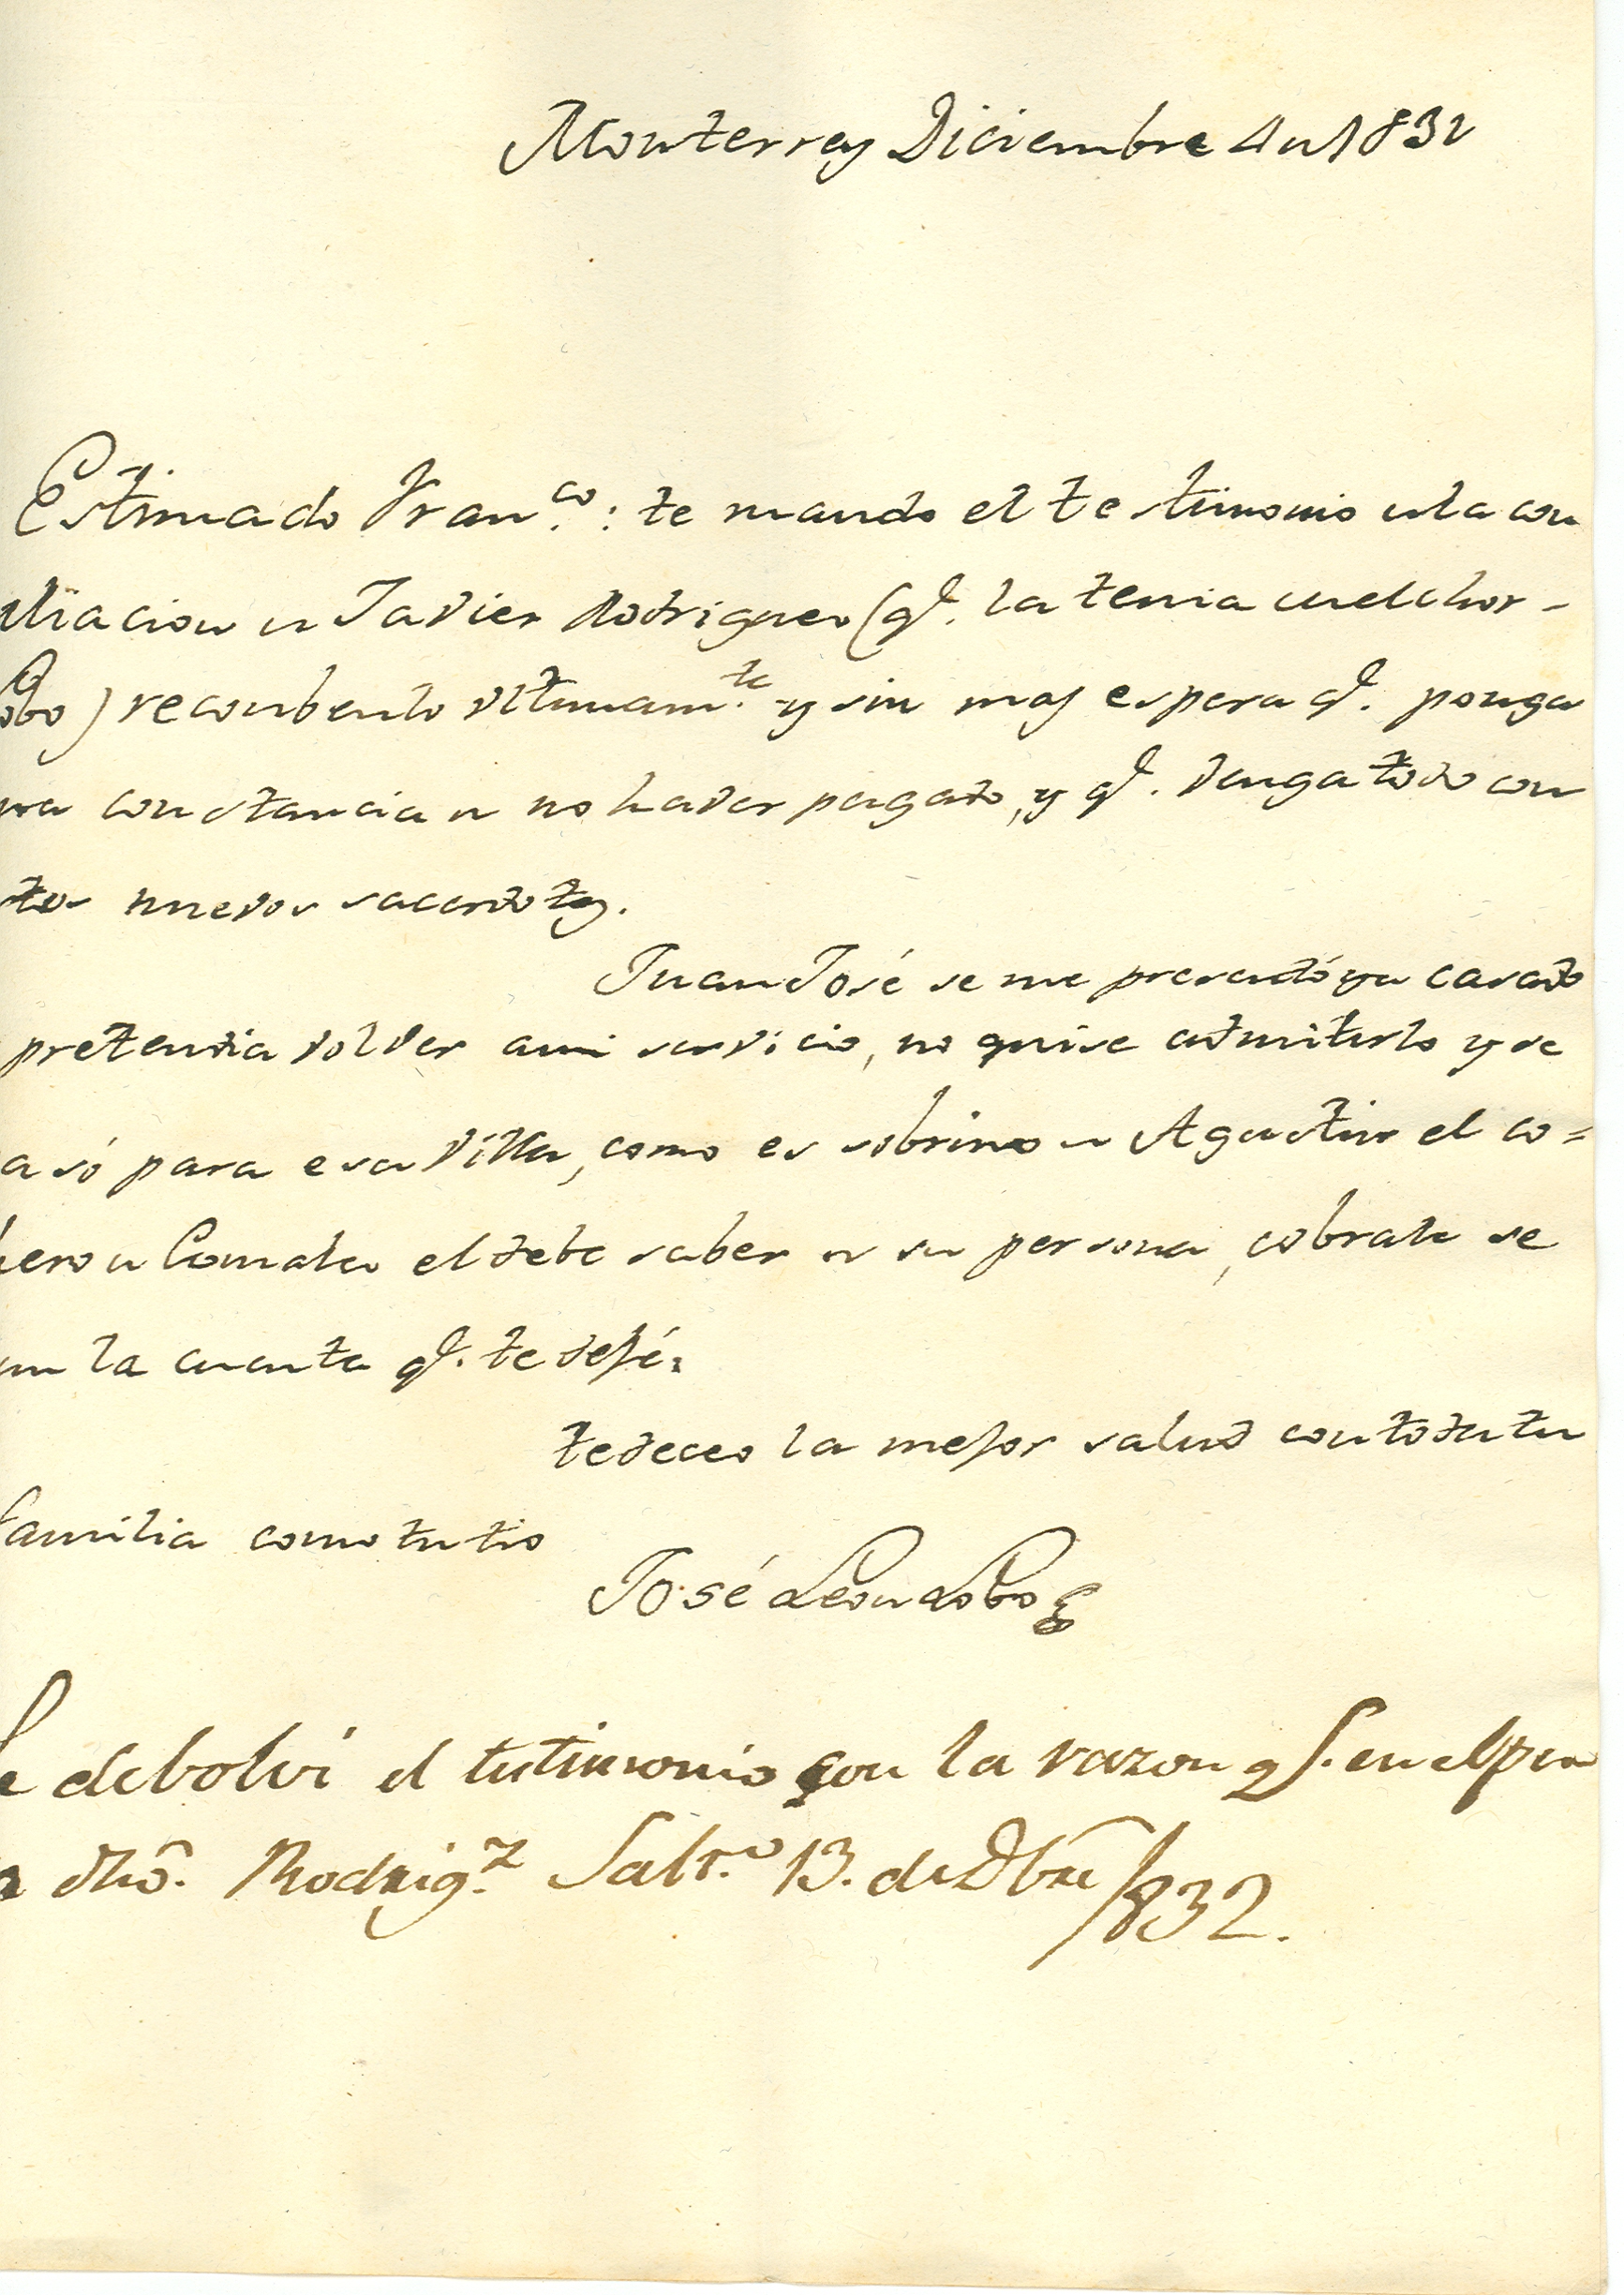 Monterrey Diciembre 4 de 1832
Estimado Fran.co: te mando el testimonio de la con
iliacion de Javier Rodriguez (q.e la tenia melchor -
obo) reconbenlo ultimam.te y sin mas espera q.e ponga
constancia de no haver pagado, y q.e venga todo con
tos nuevos sacerdotes.
Juan José se me presentó ya casado
pretendia volver a mi servicio, no quise admitirlo y se
asó para esa Villa, como es sobrino de Agustin el co=
hero de el debe saber de su persona, cobrale se
un la cuenta q.e te dejé.
te deceo la mejor salud con toda tu
familia como tu tio
José Leon Lobo
e debolvi el testimonio con la razon q.e en el
dho. Rodrig.z Salt.o 13. de Dbre/832.